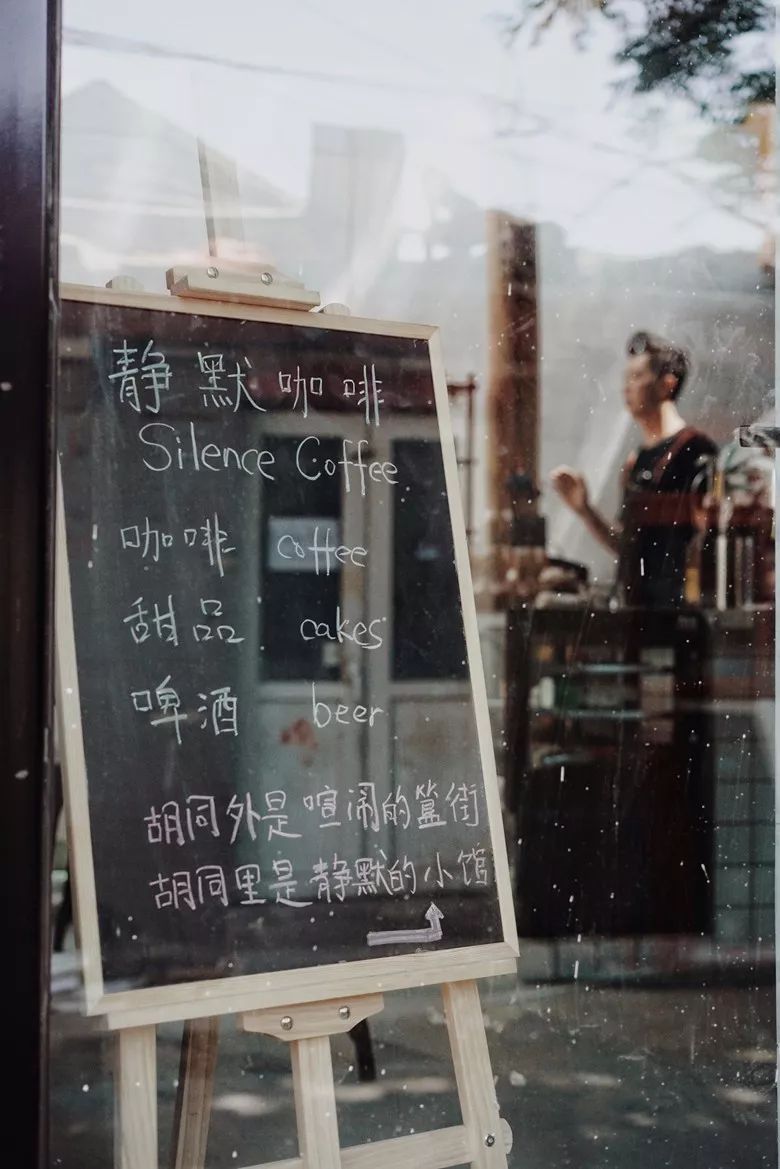 静默咖啡
Silence Coffee
咖啡 coffee
甜品 cakes
啤酒 beer
胡同外是喧闹的簋街
胡同里是静默的小馆